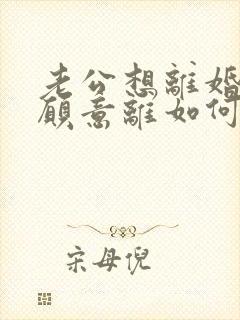 老公想離婚
願意離如何
宋母倪